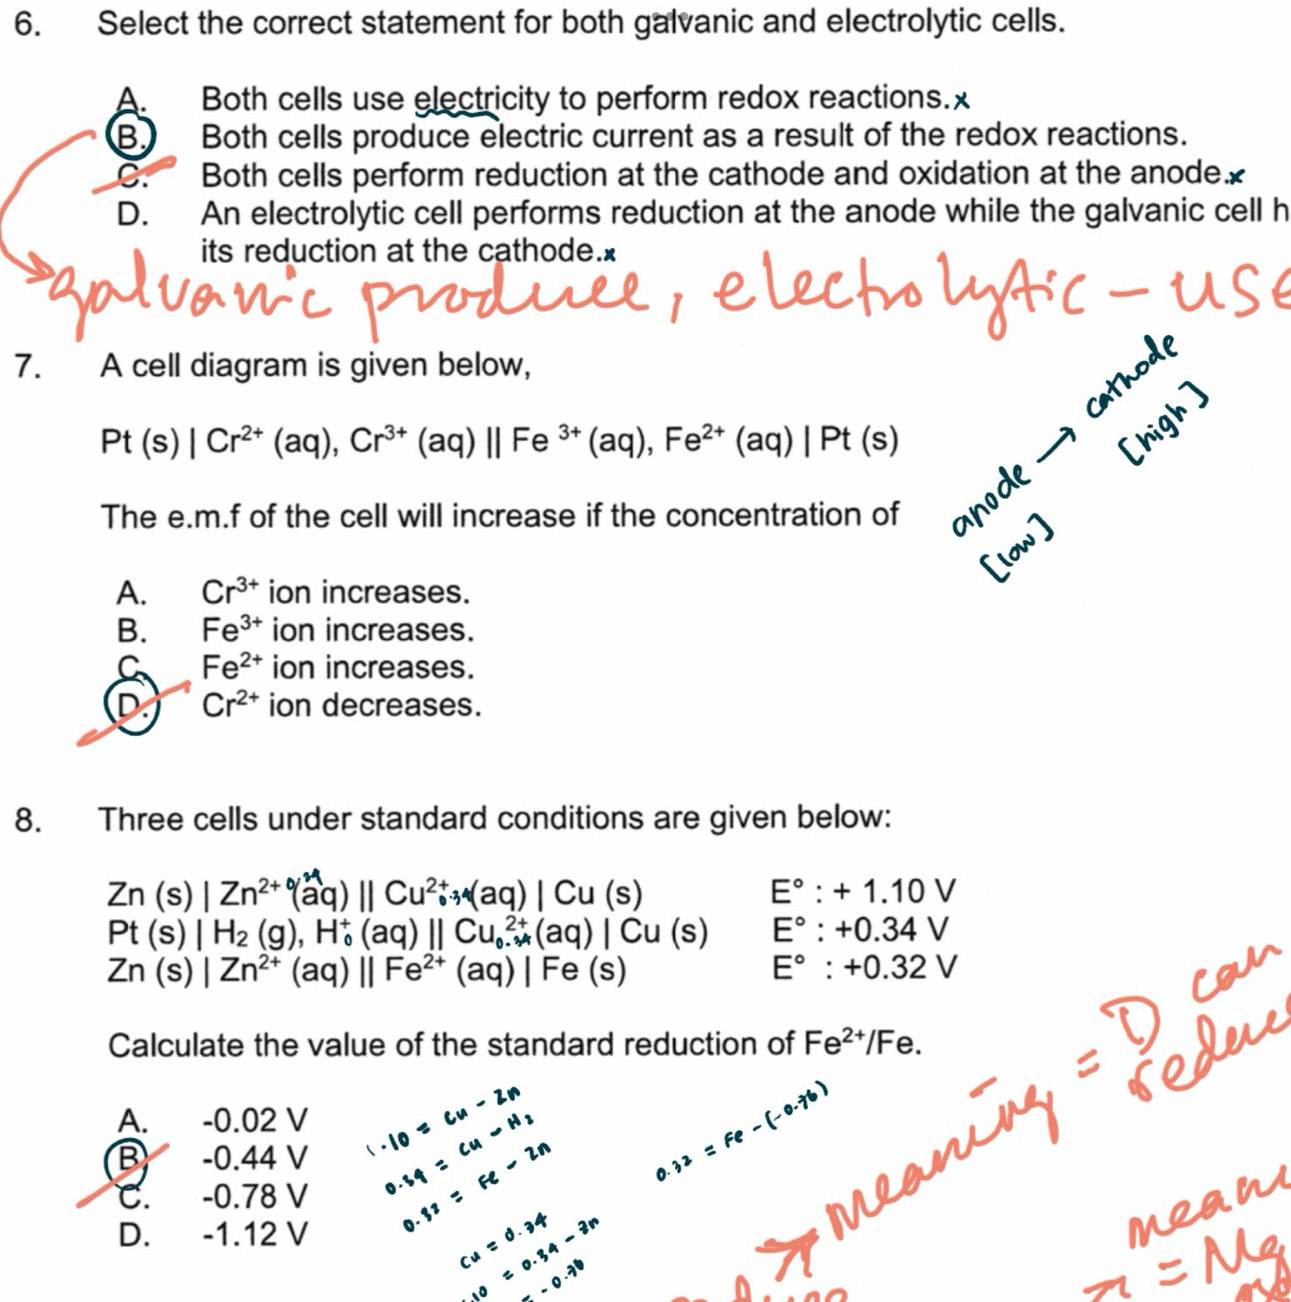 6. Select the correct statement for both galvanic and electrolytic cells.
A. Both cells use electricity to perform redox reactions. x
B. Both cells produce electric current as a result of the redox reactions.
C. Both cells perform reduction at the cathode and oxidation at the anode. x
D. An electrolytic cell performs reduction at the anode while the galvanic cell h
its reduction at the cathode. x
galvanic produce, electrolytic - use
7. A cell diagram is given below,
anode → cathode
[low] [high]
Pt (s) | Cr²⁺ (aq), Cr³⁺ (aq) || Fe ³⁺ (aq), Fe²⁺ (aq) | Pt (s)
The e.m.f of the cell will increase if the concentration of
A. Cr³⁺ ion increases.
B. Fe³⁺ ion increases.
C. Fe²⁺ ion increases.
D. Cr²⁺ ion decreases.
8. Three cells under standard conditions are given below:
Zn (s) | Zn²⁺ (aq) || Cu²⁺ 0.34 (aq) | Cu (s) E° : + 1.10 V
Pt (s) | H₂ (g), H⁺ 0 (aq) || Cu²⁺ 0.34 (aq) | Cu (s) E° : +0.34 V
Zn (s) | Zn²⁺ (aq) || Fe²⁺ (aq) | Fe (s) E° : +0.32 V
Calculate the value of the standard reduction of Fe²⁺/Fe.
A. -0.02 V
B. -0.44 V
C. -0.78 V
D. -1.12 V
1.10 = Cu - Zn
0.34 = Cu - H₂
0.32 = Fe - Zn
Cu = 0.34
.10 = 0.34 - Zn
= -0.76
0.32 = Fe - (-0.76)
meaning = D can
reduce
mean
= Mg